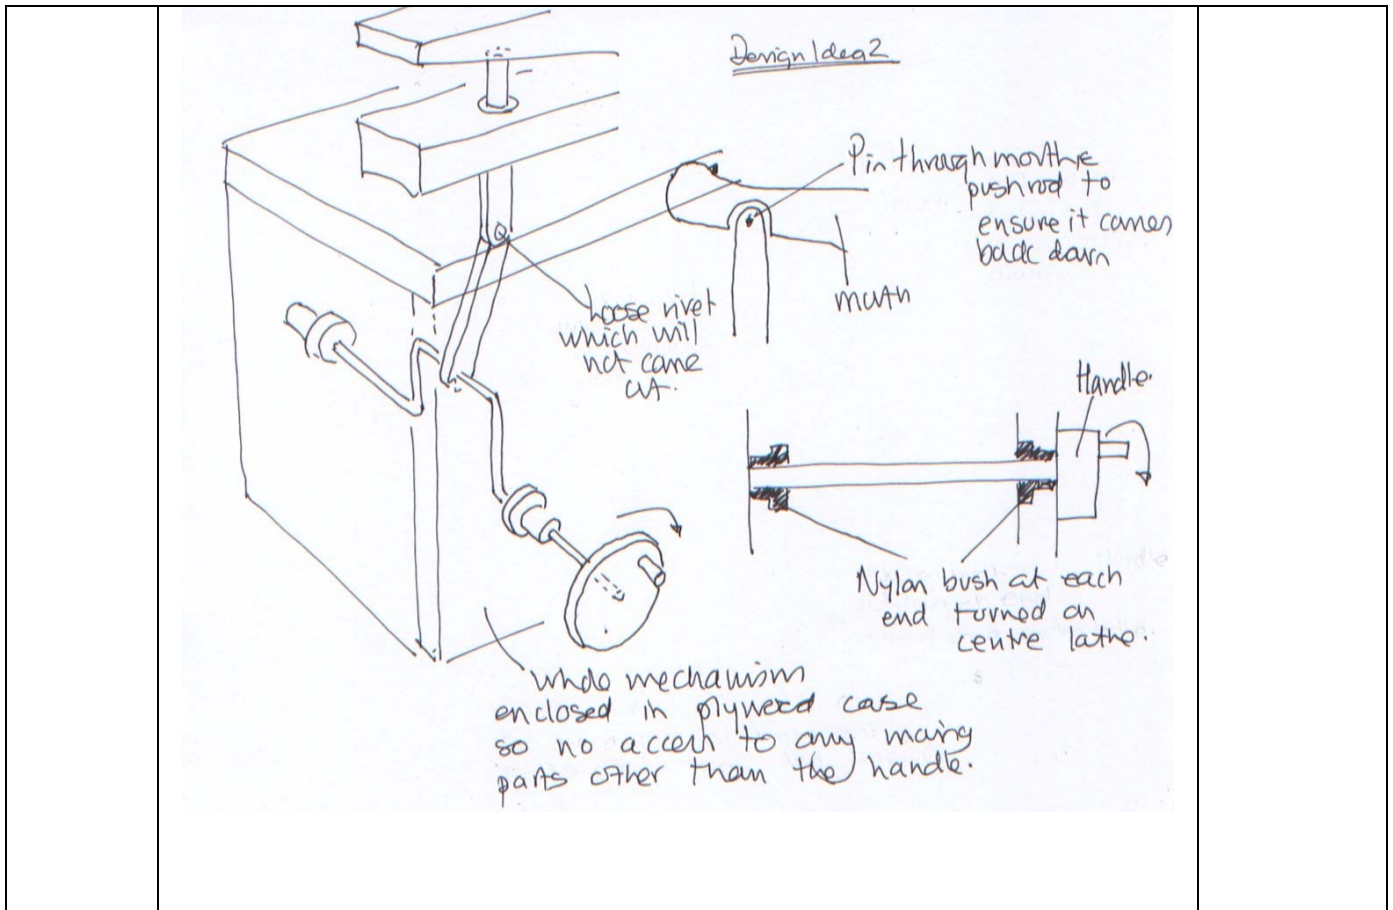 Design Idea 2
Pin through mouth &
push rod to
ensure it comes
back down
mouth
Loose rivet
which will
not come
out.
Handle
Nylon bush at each
end turned on
centre lathe.
whole mechanism
enclosed in plywood case
so no access to any moving
parts other than the handle.